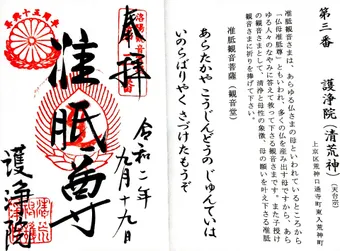 第三番 護浄院(清荒神)(天台宗)
上京区荒神口通寺町東入荒神町
准胝観音さまは、あらゆる仏さまの母といわれているところから
「仏母准胝尊」ともいわれ、多くの仏を産み出す母ですから、あら
ゆる人々のなやみに答えて救って下さる観音さまです。また子授け
の観音さまとして、清浄と母性の象徴、母の願いを叶え下さる准胝
観音さまに祈りを捧げて下さい。
准胝観音菩薩(観音堂)
あらたかやこうじんどうのじゅんていは
いのらばりやくさづけたもうぞ
奉拝
令和二年九月十九日
准胝尊
護浄院